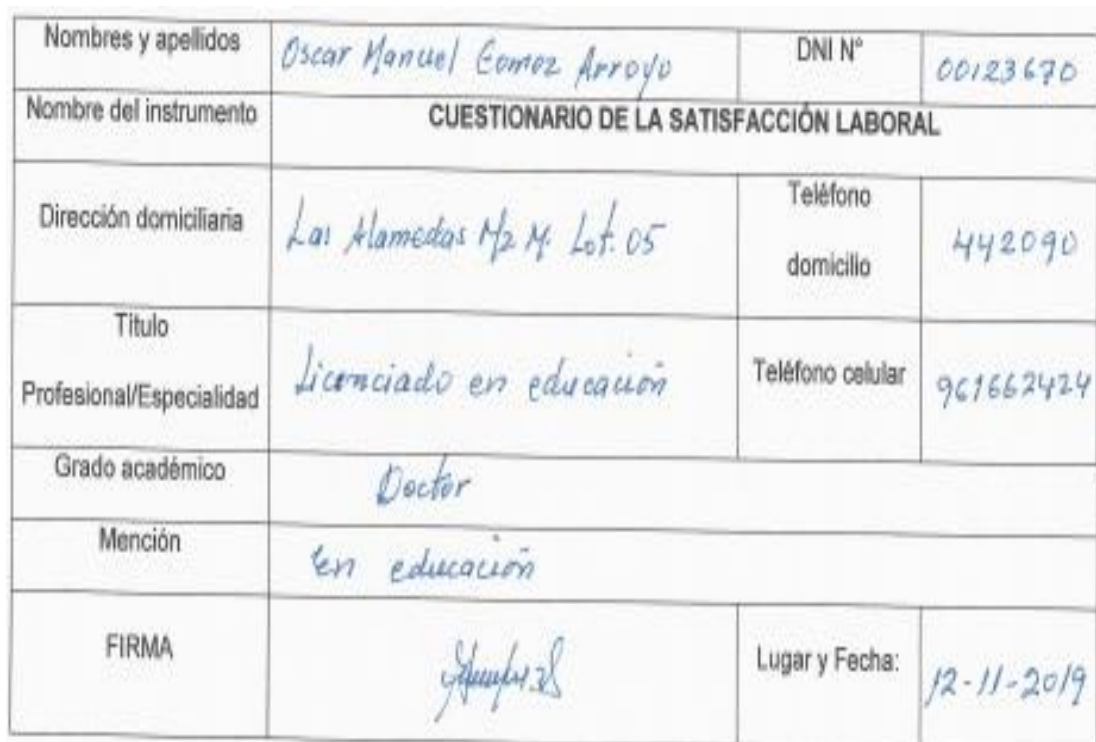 Nombres y apellidos Oscar Manuel Gomez Arroyo DNI N° 00123670
Nombre del instrumento CUESTIONARIO DE LA SATISFACCIÓN LABORAL
Dirección domiciliaria Las Alamedas Mz M. Lot. 05 Teléfono
domicilio 442090
Título
Profesional/Especialidad Licenciado en educación Teléfono celular 961662424
Grado académico Doctor
Mención En educación
FIRMA Lugar y Fecha: 12-11-2019